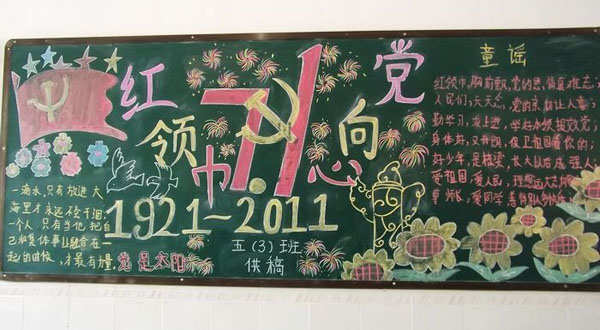 红领巾心向党
7.1
1921~2011
五(3)班
供稿
一滴水,只有放进大
海里才永远不会干涸,
一个人只有当他把自
己和集体事业融合在一
起的时候,才最有力量。
党是太阳
童谣
红领巾,胸前飘,党的恩
人民们,天天
勤学习,爱上进,学好本领
身体好,
好少年,是栋梁,长大以后成
爱祖国,爱人民,理想远大
师长,爱同学